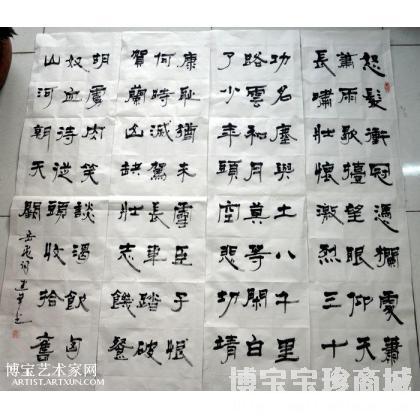 怒髮衝冠憑欄處蕭
蕭雨歇擡望眼仰天
長嘯壯懷激烈三十
功名塵與土八千里
路雲和月莫等閑白
了少年頭空悲切靖
康恥猶未雪臣子恨
何時滅駕長車踏破
賀蘭山缺壯志饑餐
胡虜肉笑談渴飲匈
奴血待從頭收拾舊
山河朝天闕
岳飛詞
博宝艺术家网
ARTIST.ARTXUN.COM
博宝宝珍商城